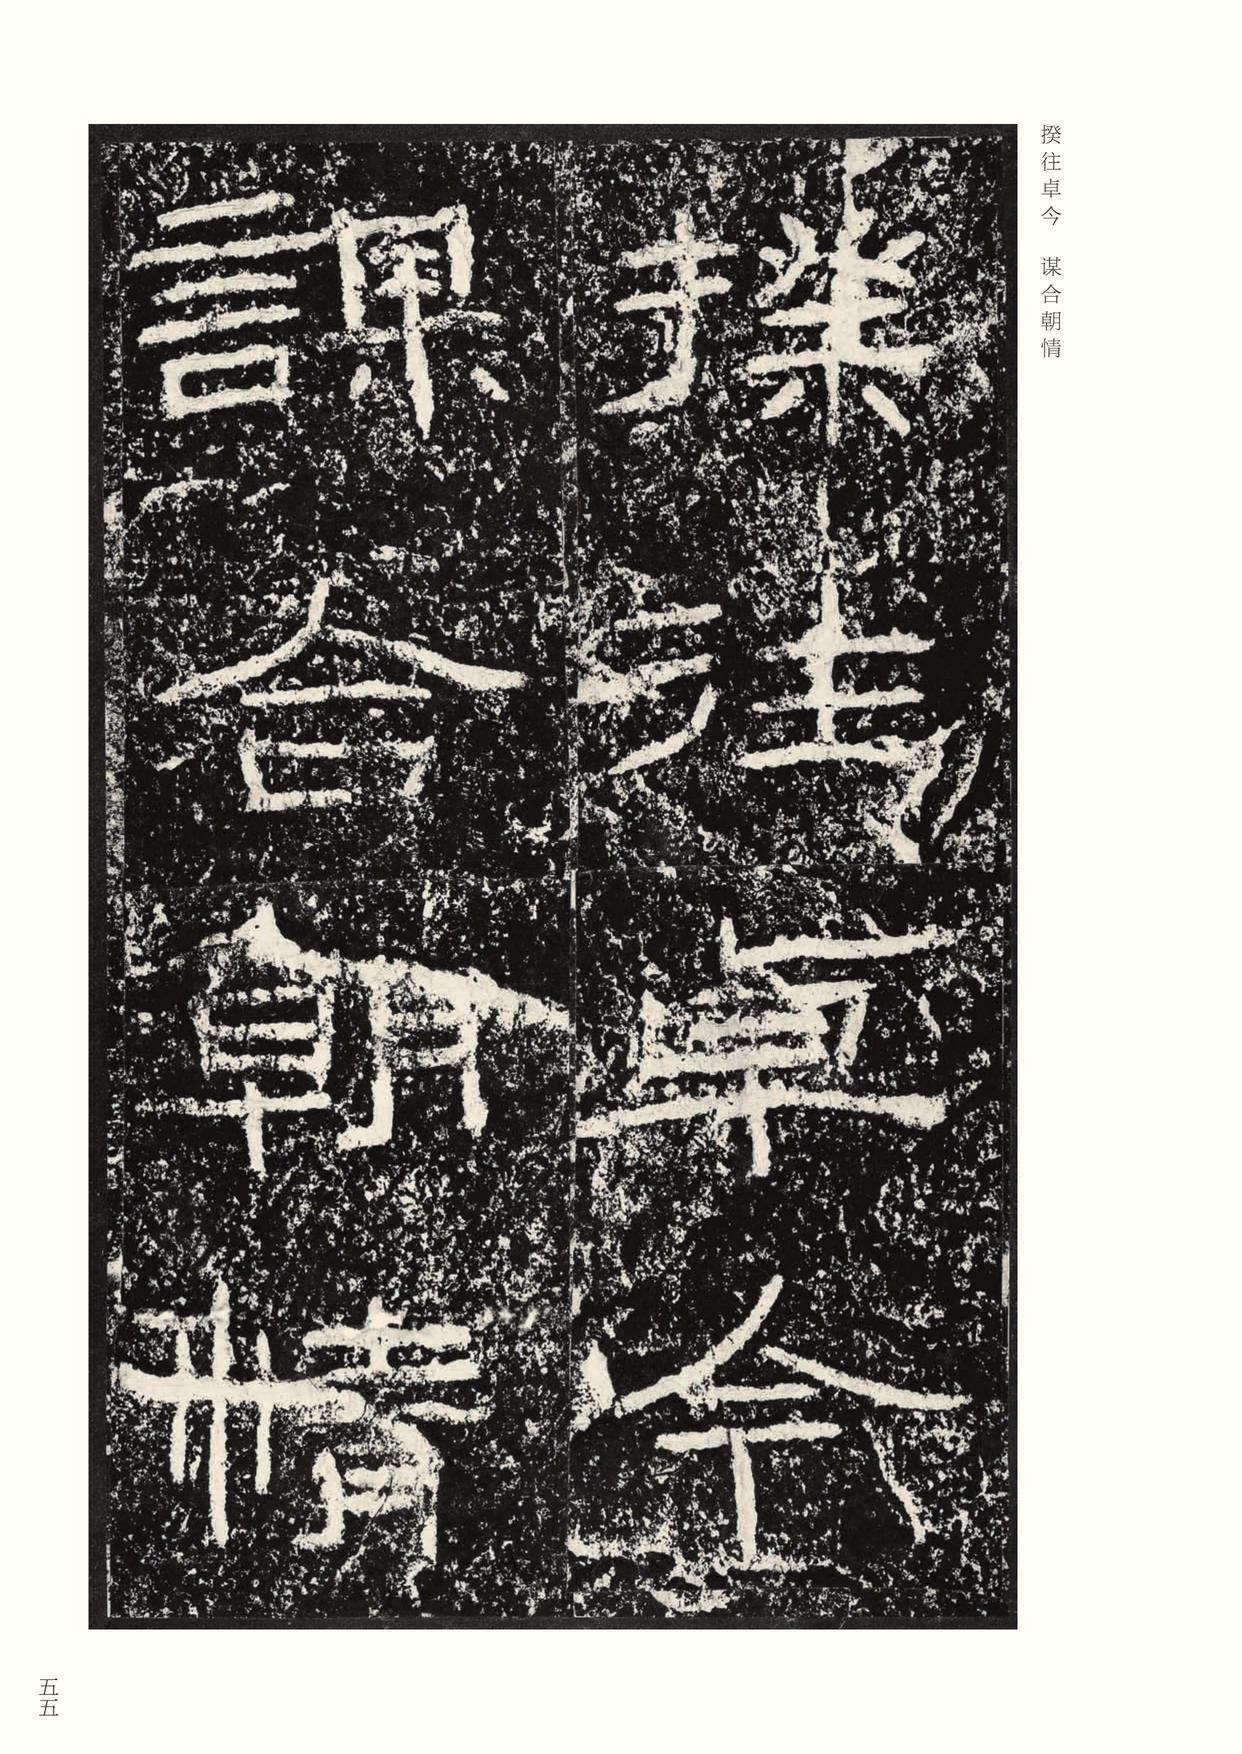 揆往卓今　谋合朝情
揆往卓今
謀合朝情
五五